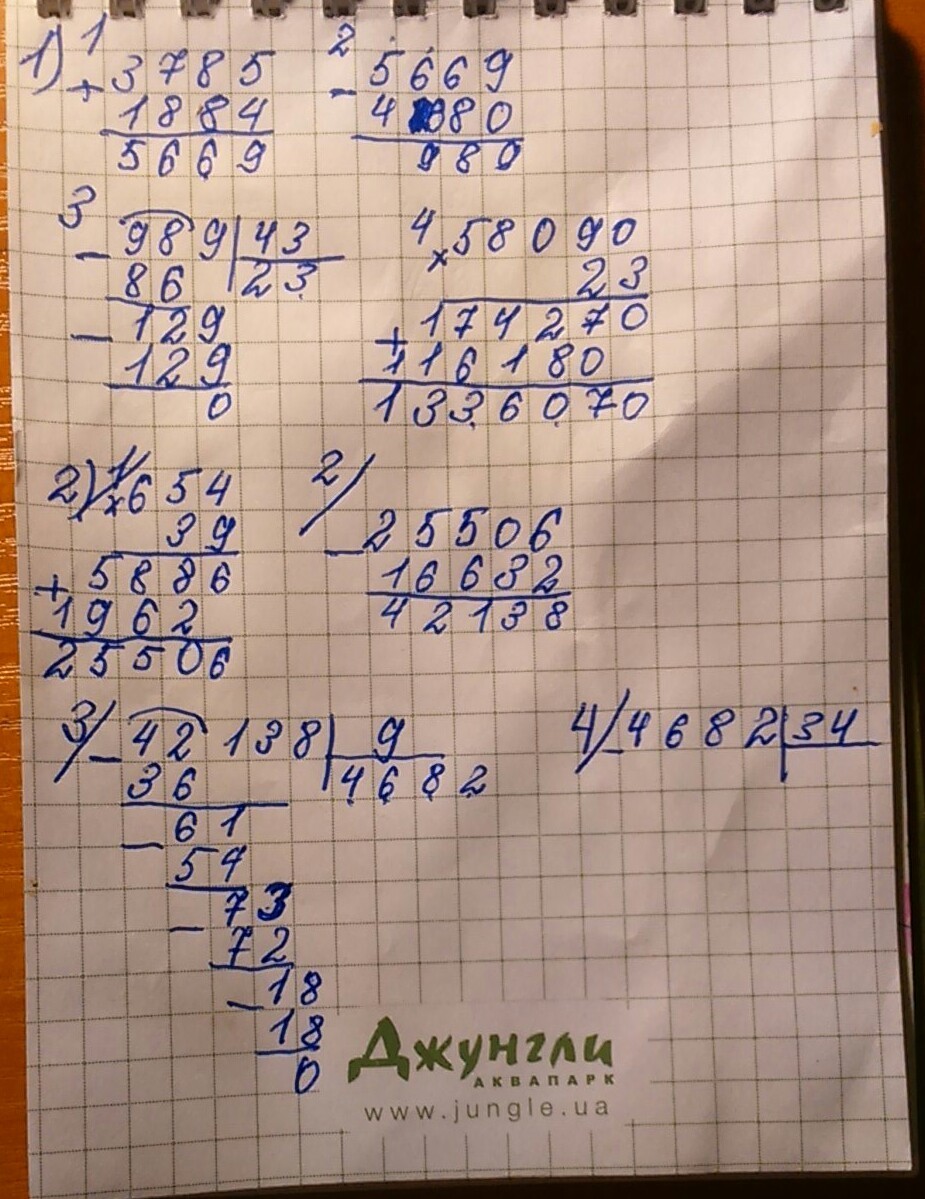 1) 1 2
+ 3785 - 5669
1884 4080
5669 989
3 - 989 | 43 4 × 58090
86 23 23
- 129 174270
129 + 116180
0 1336070
2) 1/ × 654 2/
39 - 25506
+ 5886 16632
1962 42138
25506
3/ - 42138 | 9 4/ - 4682 | 34
36 4682
- 61
54
- 73
72
- 18
18
0
Джунгли
АКВАПАРК
www.jungle.ua